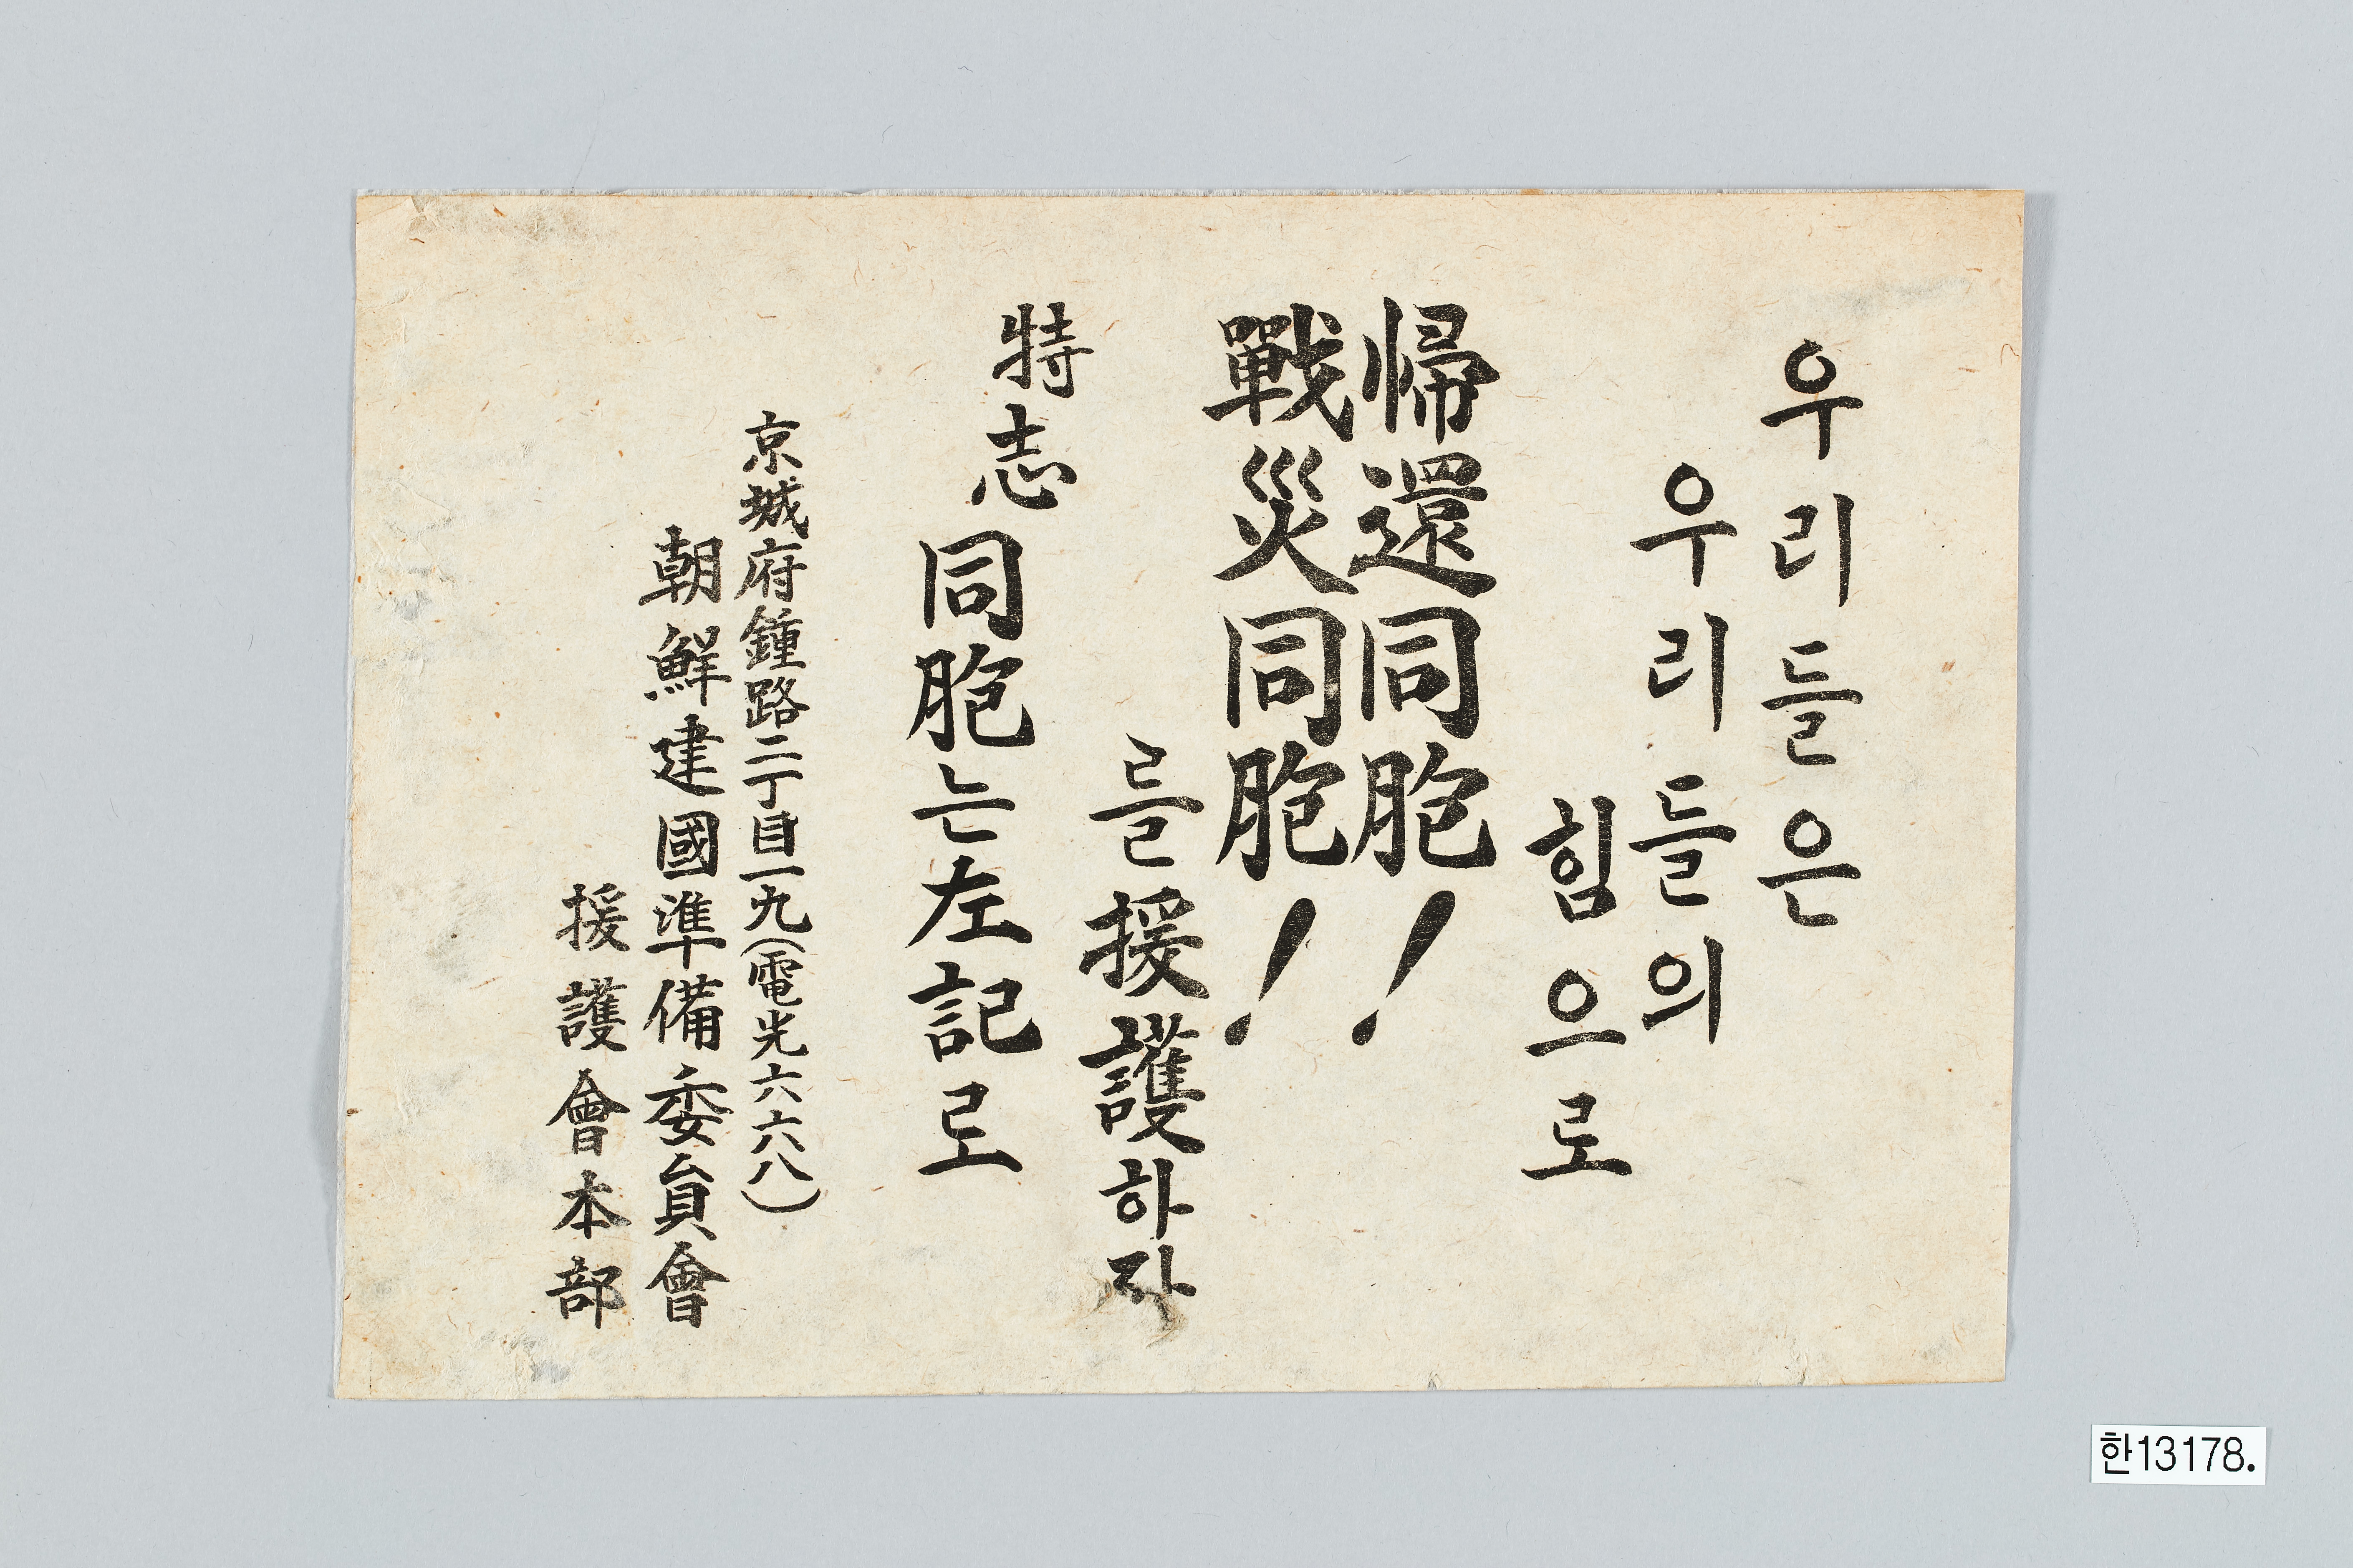 우리들은
우리들의
힘으로
帰還同胞!
戰災同胞!
를援護하자
特志同胞는左記로
京城府鍾路二丁目一九(電光六六八)
朝鮮建國準備委員會
援護會本部
한13178.